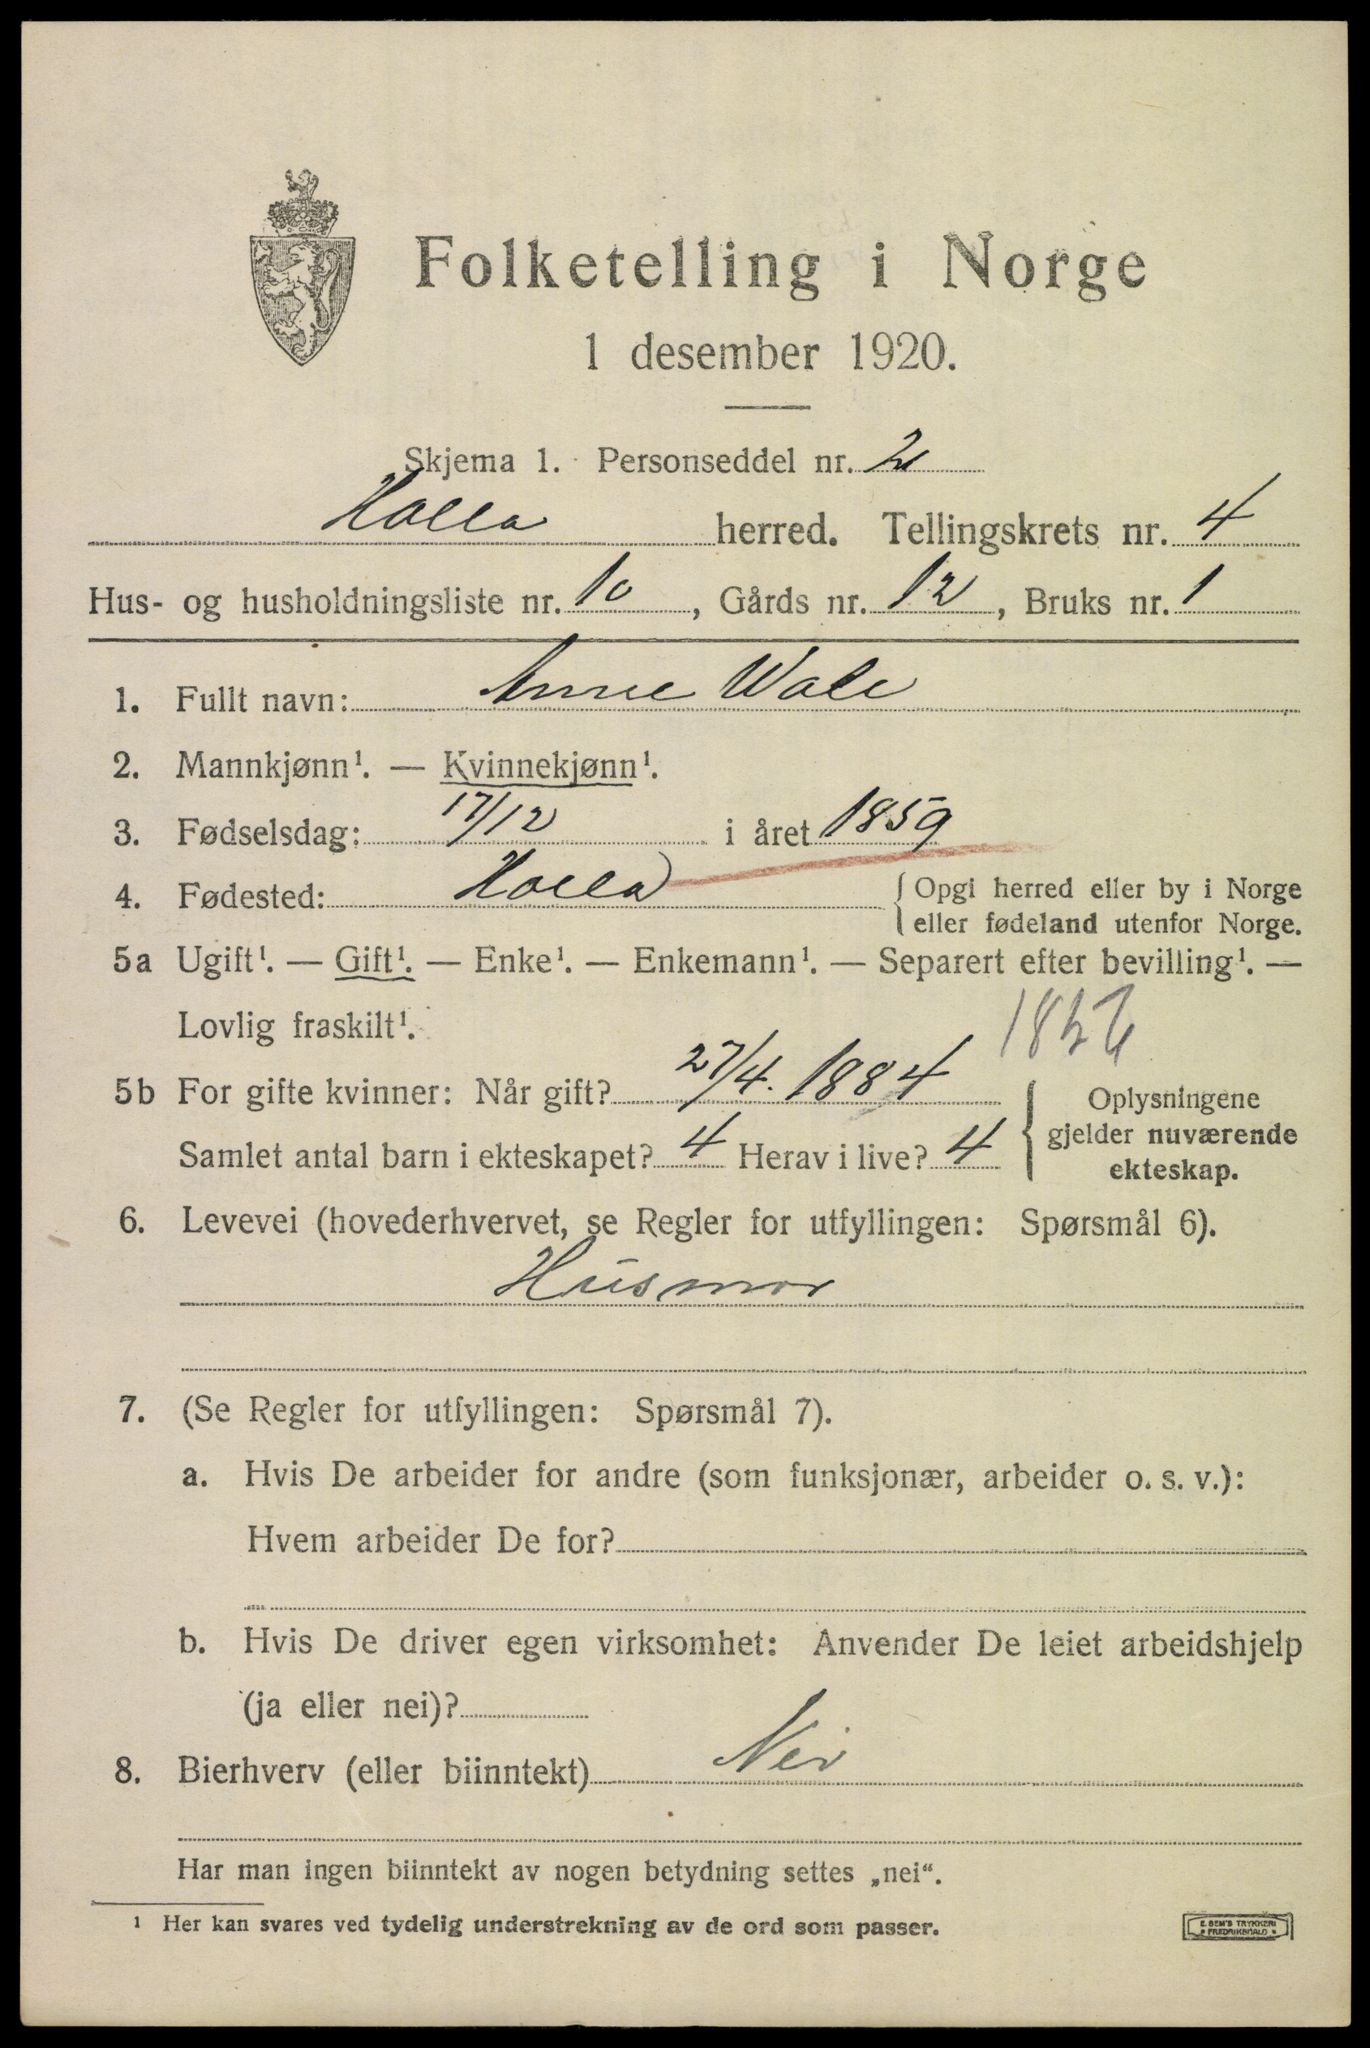 Folketelling i Norge
1 desember 1920.
Skjema 1. Personseddel nr. 2
Holla herred. Tellingskrets nr. 4
Hus- og husholdningsliste nr. 10, Gårds nr. 12, Bruks nr. 1
1. Fullt navn: Anne Wale
2. Mannkjønn¹. — Kvinnekjønn¹.
3. Fødselsdag: 17/12 i året 1859
4. Fødested: Holla { Opgi herred eller by i Norge
eller fødeland utenfor Norge.
5a Ugift¹. — Gift¹. — Enke¹. — Enkemann¹. — Separert efter bevilling¹. —
Lovlig fraskilt¹.
5b For gifte kvinner: Når gift? 27/4. 1884
Samlet antal barn i ekteskapet? 4 Herav i live? 4
Oplysningene
gjelder nuværende
ekteskap.
6. Levevei (hovederhvervet, se Regler for utfyllingen: Spørsmål 6).
Husmor
7. (Se Regler for utfyllingen: Spørsmål 7).
a. Hvis De arbeider for andre (som funksjonær, arbeider o. s. v.):
Hvem arbeider De for?
b. Hvis De driver egen virksomhet: Anvender De leiet arbeidshjelp
(ja eller nei)?
8. Bierhverv (eller biinntekt) Nei
Har man ingen biinntekt av nogen betydning settes „nei“.
¹ Her kan svares ved tydelig understrekning av de ord som passer.
E. SEM'S TRYKKERI
FREDRIKSHALD